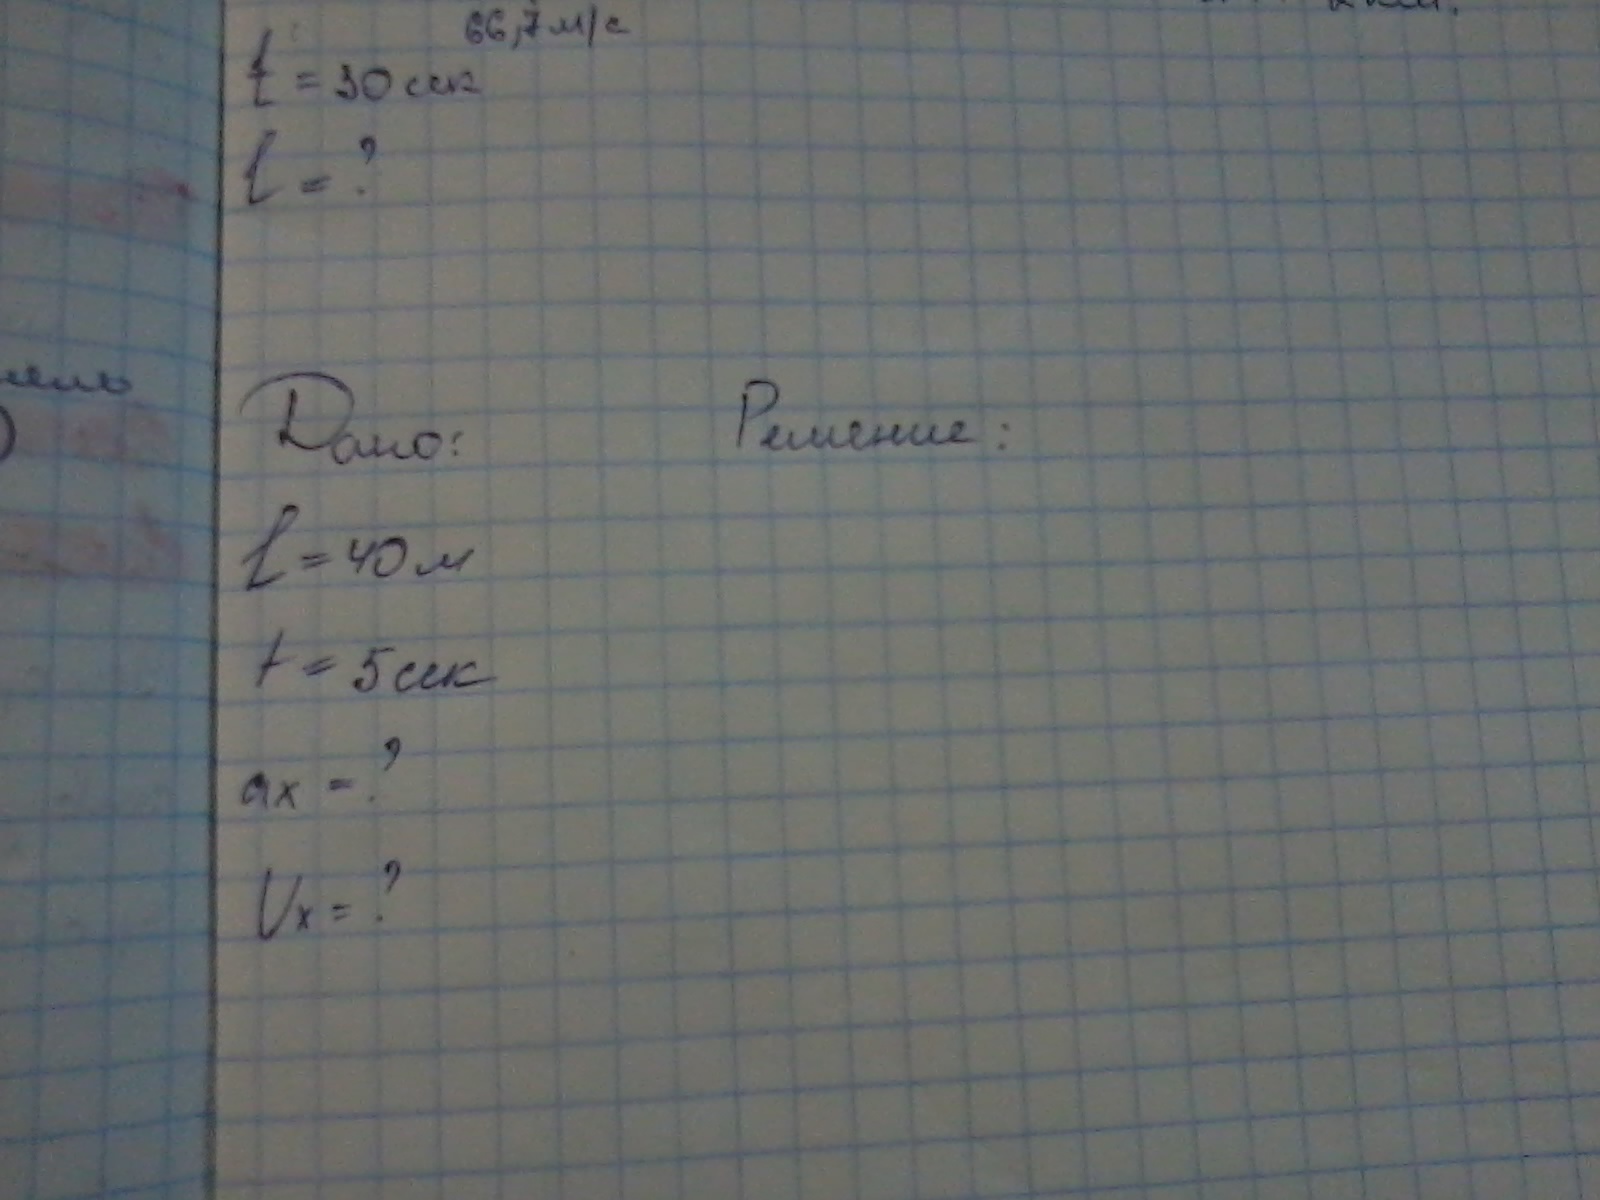 66,7 м/с
t = 30 сек
l = ?
Дано:
Решение:
l = 40 м
t = 5 сек
ax = ?
Vx = ?